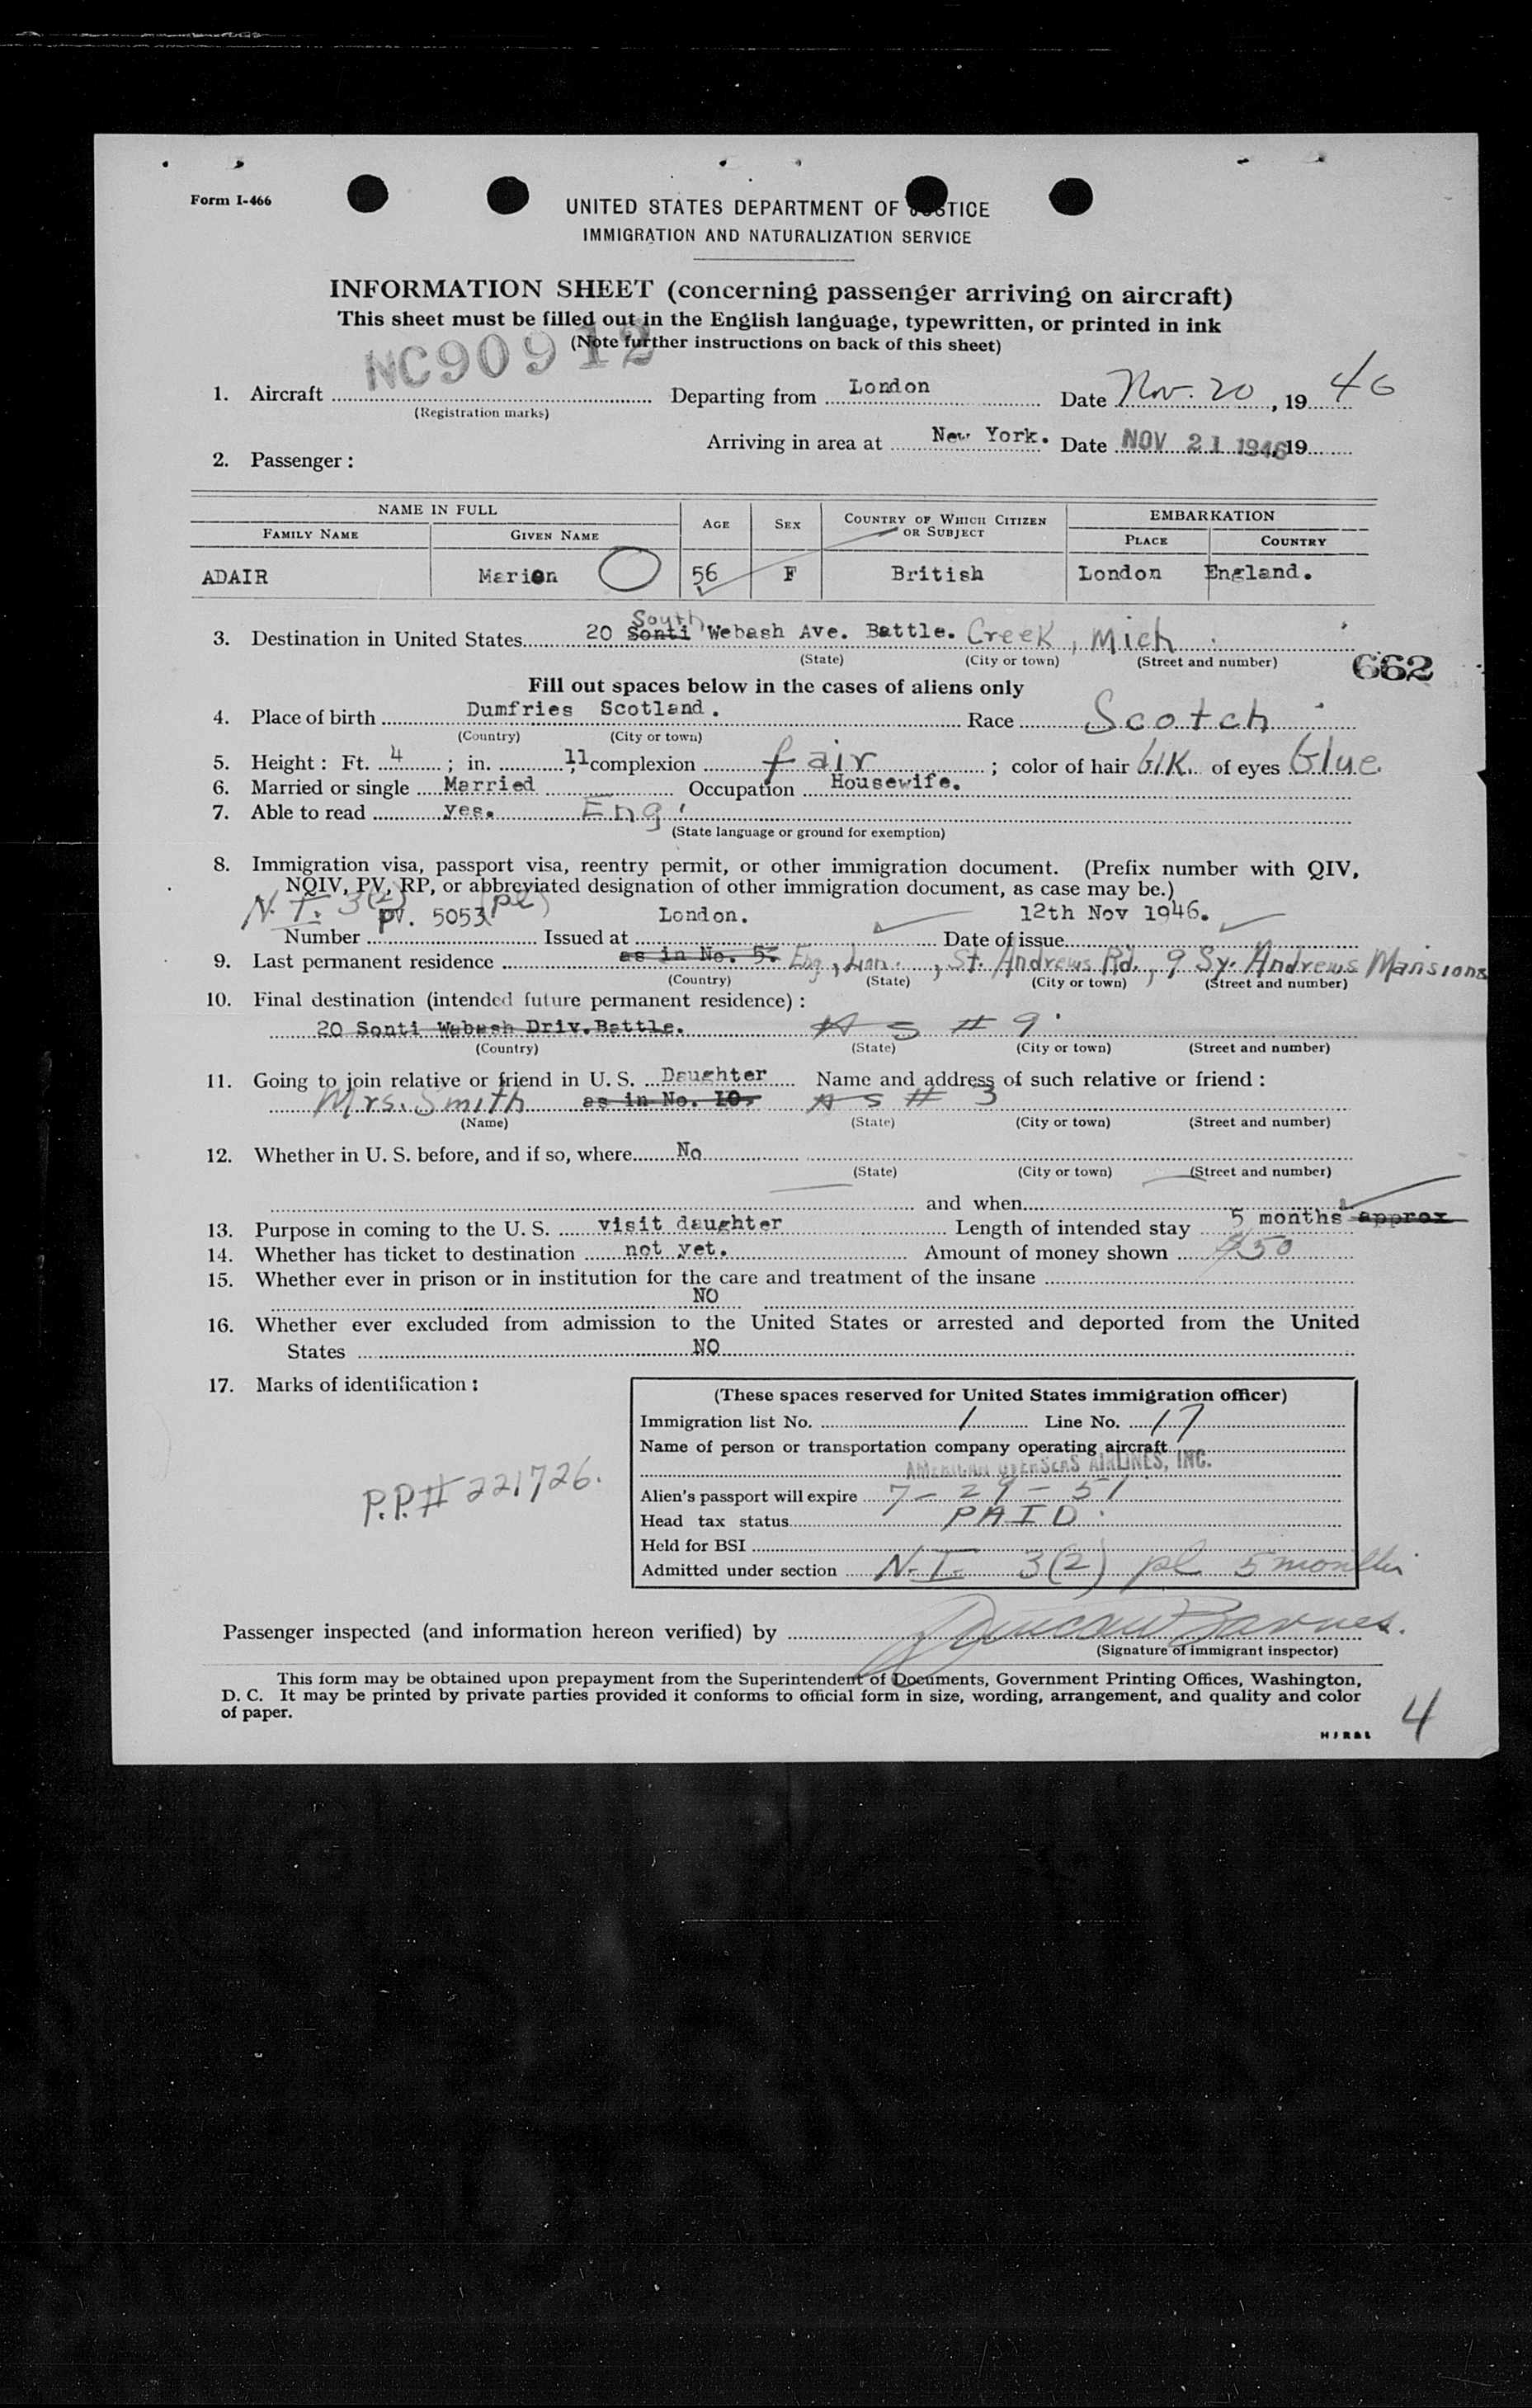 Form I-466
UNITED STATES DEPARTMENT OF JUSTICE
IMMIGRATION AND NATURALIZATION SERVICE
INFORMATION SHEET (concerning passenger arriving on aircraft)
This sheet must be filled out in the English language, typewritten, or printed in ink
(Note further instructions on back of this sheet)
NC90912
1. Aircraft Departing from London Date Nov. 20, 19 46
(Registration marks)
Arriving in area at New York. Date NOV 21 1946, 19
2. Passenger:
NAME IN FULL AGE SEX COUNTRY OF WHICH CITIZEN OR SUBJECT EMBARKATION
FAMILY NAME GIVEN NAME PLACE COUNTRY
ADAIR Marion 56 F British London England.
South
3. Destination in United States 20 Sonti Webash Ave. Battle. Creek, Mich
(State) (City or town) (Street and number)
662
Fill out spaces below in the cases of aliens only
4. Place of birth Dumfries Scotland. Race Scotch
(Country) (City or town)
5. Height: Ft. 4; in. 11 complexion fair; color of hair GlK. of eyes Glue
6. Married or single Married Occupation Housewife.
7. Able to read yes. Eng.
(State language or ground for exemption)
8. Immigration visa, passport visa, reentry permit, or other immigration document. (Prefix number with QIV,
NQIV, PV, RP, or abbreviated designation of other immigration document, as case may be.)
N.I. 3(2) (pl)
PV. 5053 London. 12th Nov 1946.
Number Issued at Date of issue
9. Last permanent residence as in No. 5. Eng., , St. Andrews Rd., 9 Sy. Andrews Mansions
(Country) (State) (City or town) (Street and number)
10. Final destination (intended future permanent residence):
20 Sonti Wabash Driv. Battle. As # 9
(Country) (State) (City or town) (Street and number)
11. Going to join relative or friend in U. S. Daughter Name and address of such relative or friend:
Mrs. Smith as in No. 10. As # 3
(Name) (State) (City or town) (Street and number)
12. Whether in U. S. before, and if so, where No
(State) (City or town) (Street and number)
and when
13. Purpose in coming to the U. S. visit daughter Length of intended stay 5 months approx
14. Whether has ticket to destination not yet. Amount of money shown $50
15. Whether ever in prison or in institution for the care and treatment of the insane
NO
16. Whether ever excluded from admission to the United States or arrested and deported from the United
States NO
17. Marks of identification:
P.P.# 221726.
(These spaces reserved for United States immigration officer)
Immigration list No. 1 Line No. 17
Name of person or transportation company operating aircraft
AMERICAN OVERSEAS AIRLINES, INC.
Alien's passport will expire 7-29-51
Head tax status PAID
Held for BSI
Admitted under section N.I. 3(2) pl 5 months
Passenger inspected (and information hereon verified) by Duncan Barnes.
(Signature of immigrant inspector)
This form may be obtained upon prepayment from the Superintendent of Documents, Government Printing Offices, Washington,
D. C. It may be printed by private parties provided it conforms to official form in size, wording, arrangement, and quality and color
of paper.
4